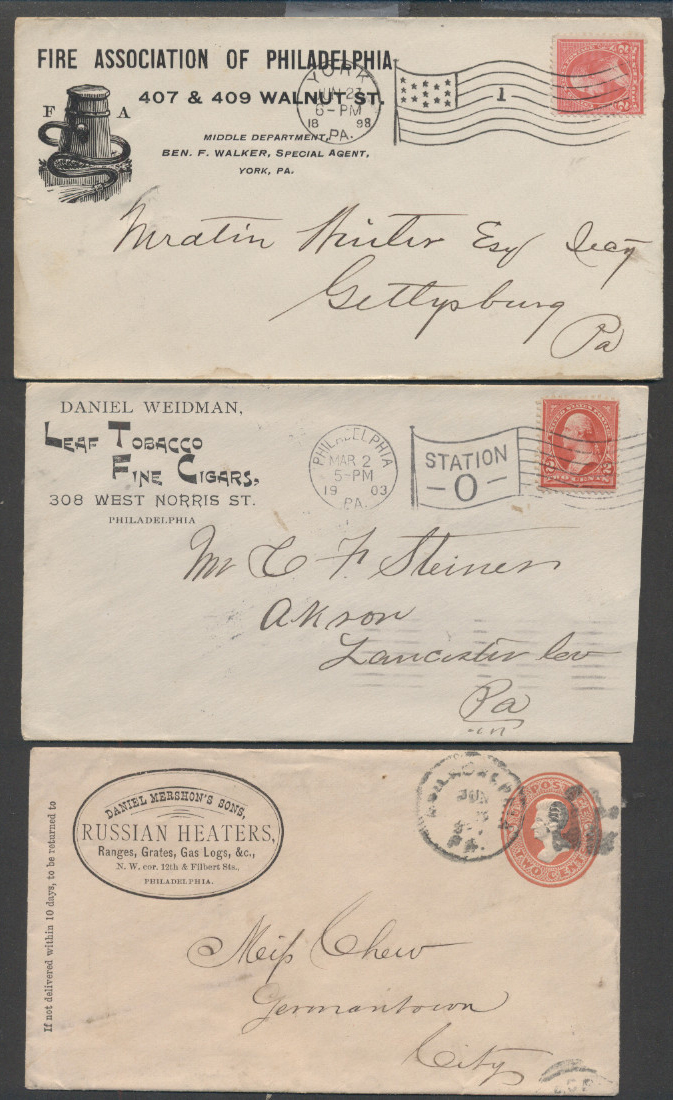 FIRE ASSOCIATION OF PHILADELPHIA
407 & 409 WALNUT ST.
F A
MIDDLE DEPARTMENT,
BEN. F. WALKER, SPECIAL AGENT,
YORK, PA.
YORK
JUN 27
6-PM
18 98
PA.
1
Esq Secy
Gettysburg
Pa
DANIEL WEIDMAN,
LEAF TOBACCO
FINE CIGARS,
308 WEST NORRIS ST.
PHILADELPHIA
PHILADELPHIA
MAR 2
5-PM
19 03
PA.
STATION
-O-
TWO CENTS
Mr C. F. Steiner
Akron
Lancaster Co
Pa
If not delivered within 10 days, to be returned to
DANIEL MERSHON'S SONS,
RUSSIAN HEATERS,
Ranges, Grates, Gas Logs, &c.,
N. W. cor. 12th & Filbert Sts.,
PHILADELPHIA.
JUN
TWO CENTS
Miss Chew
Germantown
City